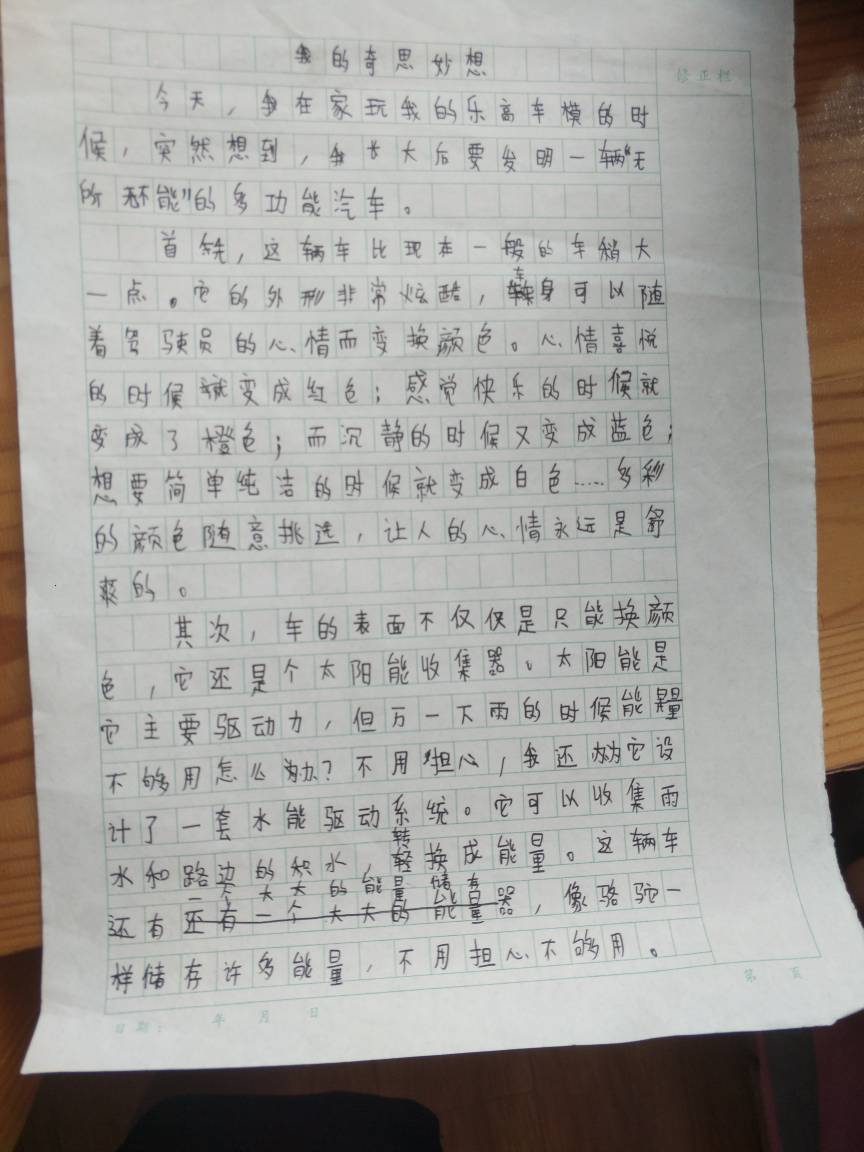 我的奇思妙想
修正栏
今天，我在家玩我的乐高车模的时
候，突然想到，我长大后要发明一辆“无
所不能”的多功能汽车。
首先，这辆车比现在一般的车稍大
一点。它的外形非常炫酷，车身可以随
着驾驶员的心情而变换颜色。心情喜悦
的时候就变成红色；感觉快乐的时候就
变成了橙色；而沉静的时候又变成蓝色；
想要简单纯洁的时候就变成白色……多彩
的颜色随意挑选，让人的心情永远是舒
爽的。
其次，车的表面不仅仅是只能换颜
色，它还是个太阳能收集器。太阳能是
它主要驱动力，但万一下雨的时候能量
不够用怎么办？不用担心，我还为它设
计了一套水能驱动系统。它可以收集雨
水和路边的积水，转换成能量。这辆车
还有一个大大的能量储存器，像骆驼一
样储存许多能量，不用担心不够用。
第 页
日期： 年 月 日